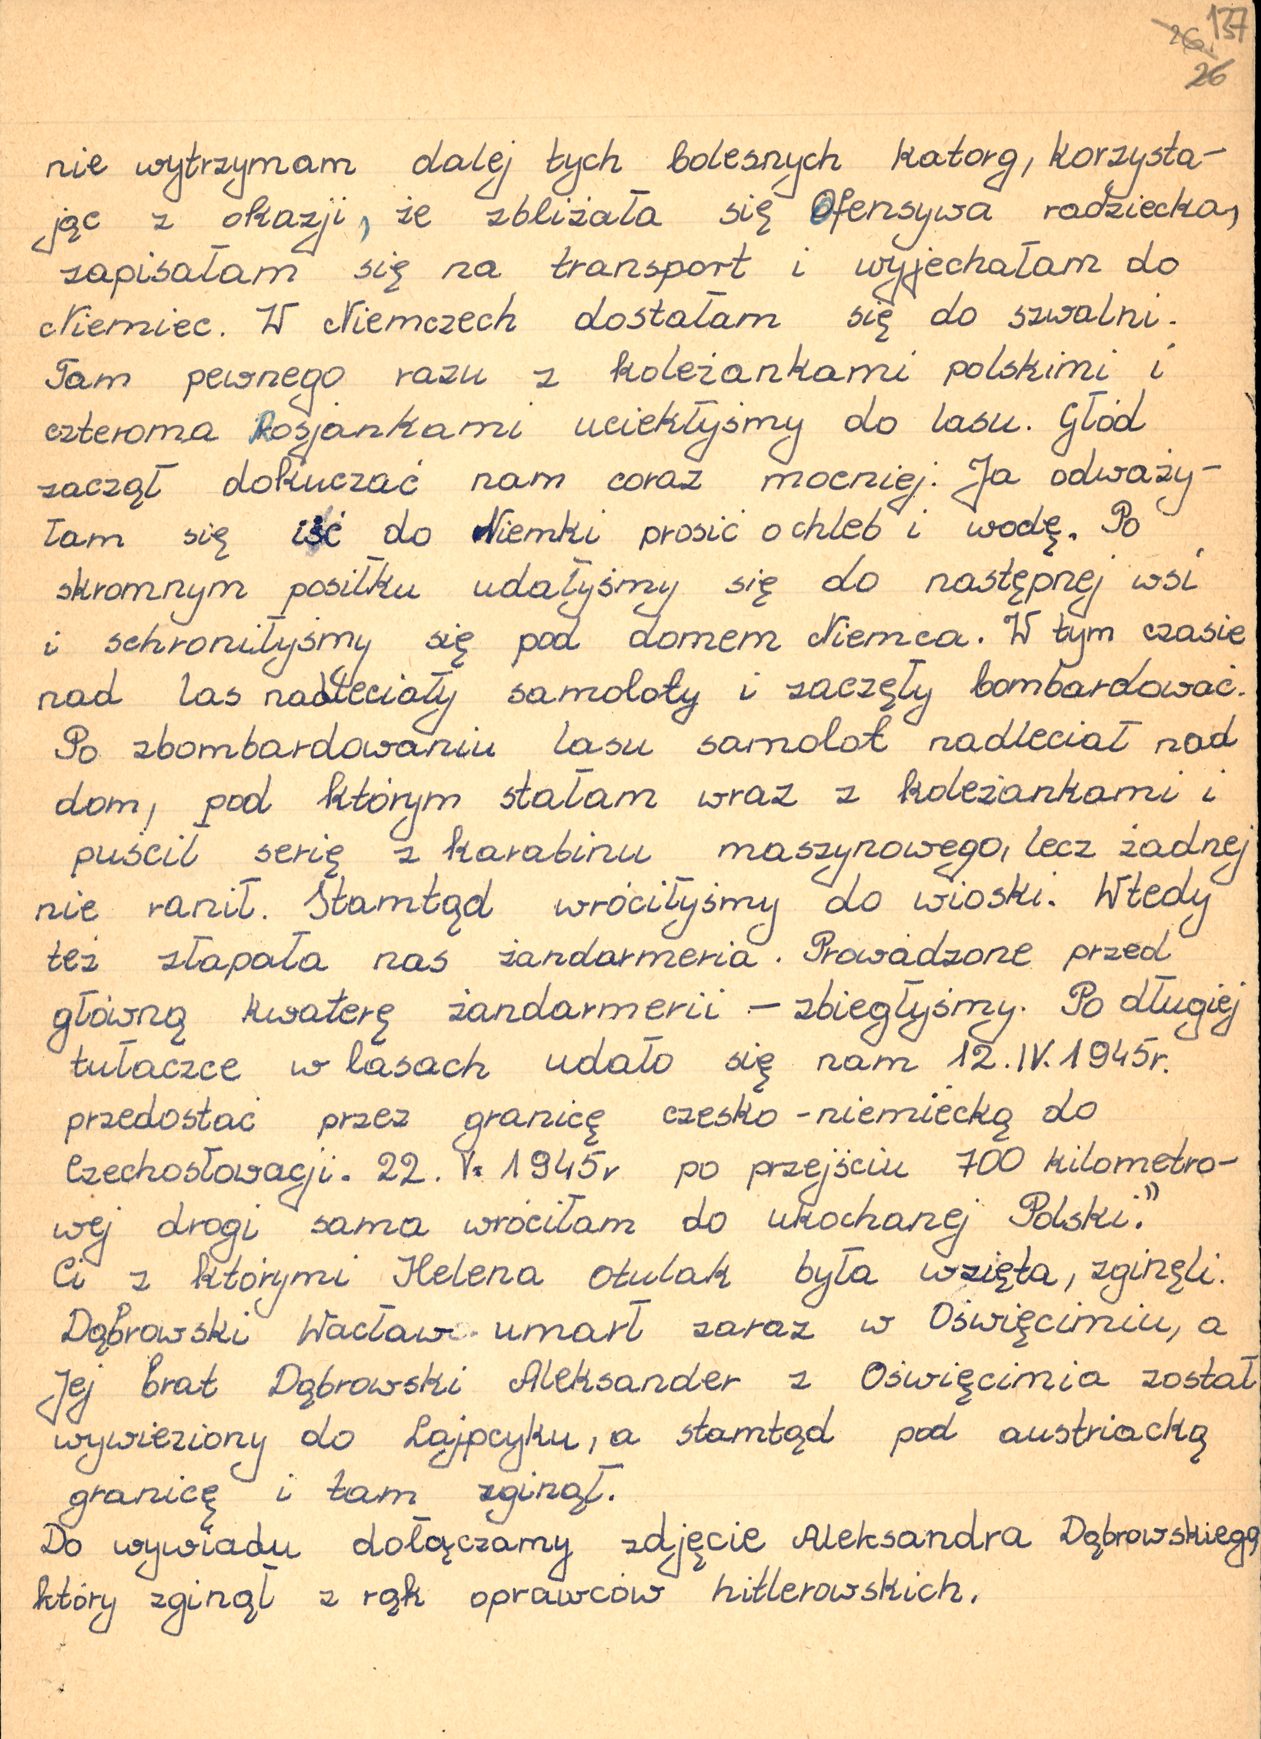 137
26.
26
nie wytrzymam dalej tych bolesnych katorg, korzysta-
jąc z okazji, że zbliżała się Ofensywa radziecka,
zapisałam się na transport i wyjechałam do
Niemiec. W Niemczech dostałam się do szwalni.
Tam pewnego razu z koleżankami polskimi i
czteroma Rosjankami uciekłyśmy do lasu. Głód
zaczął dokuczać nam coraz mocniej. Ja odważy-
łam się iść do Niemki prosić o chleb i wodę. Po
skromnym posiłku udałyśmy się do następnej wsi
i schroniłyśmy się pod domem Niemca. W tym czasie
nad las nadleciały samoloty i zaczęły bombardować.
Po zbombardowaniu lasu samolot nadleciał nad
dom, pod którym stałam wraz z koleżankami i
puścił serię z karabinu maszynowego, lecz żadnej
nie ranił. Stamtąd wróciłyśmy do wioski. Wtedy
też złapała nas żandarmeria. Prowadzone przed
główną kwaterę żandarmerii – zbiegłyśmy. Po długiej
tułaczce w lasach udało się nam 12.IV.1945r.
przedostać przez granicę czesko-niemiecką do
Czechosłowacji. 22. V. 1945r po przejściu 700 kilometro-
wej drogi sama wróciłam do ukochanej Polski."
Ci z którymi Helena Otulak była wzięta, zginęli.
Dąbrowski Wacław umarł zaraz w Oświęcimiu, a
Jej brat Dąbrowski Aleksander z Oświęcimia został
wywieziony do Lajpcyku, a stamtąd pod austriacką
granicę i tam zginął.
Do wywiadu dołączamy zdjęcie Aleksandra Dąbrowskiego,
który zginął z rąk oprawców hitlerowskich.